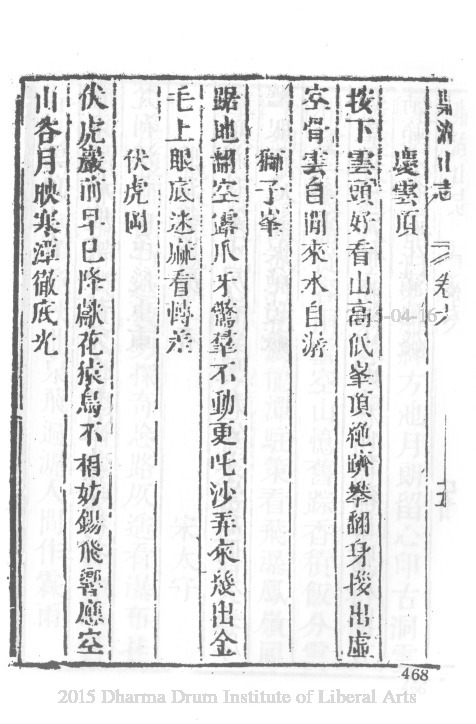 慶雲頂
按下雲頭好看山高低峯頂絶躋攀翻身拶出虛
空骨雲自閒來水自潺
獅子峯
踞地翻空露爪牙驚羣不動更吒沙弄來幾出金
毛上眼底迷麻看轉差
伏虎岡
伏虎巖前早已降獻花猿鳥不相妨錫飛響應空
山答月映寒潭徹底光
山志
卷六
2015-04-16
468
2015 Dharma Drum Institute of Liberal Arts